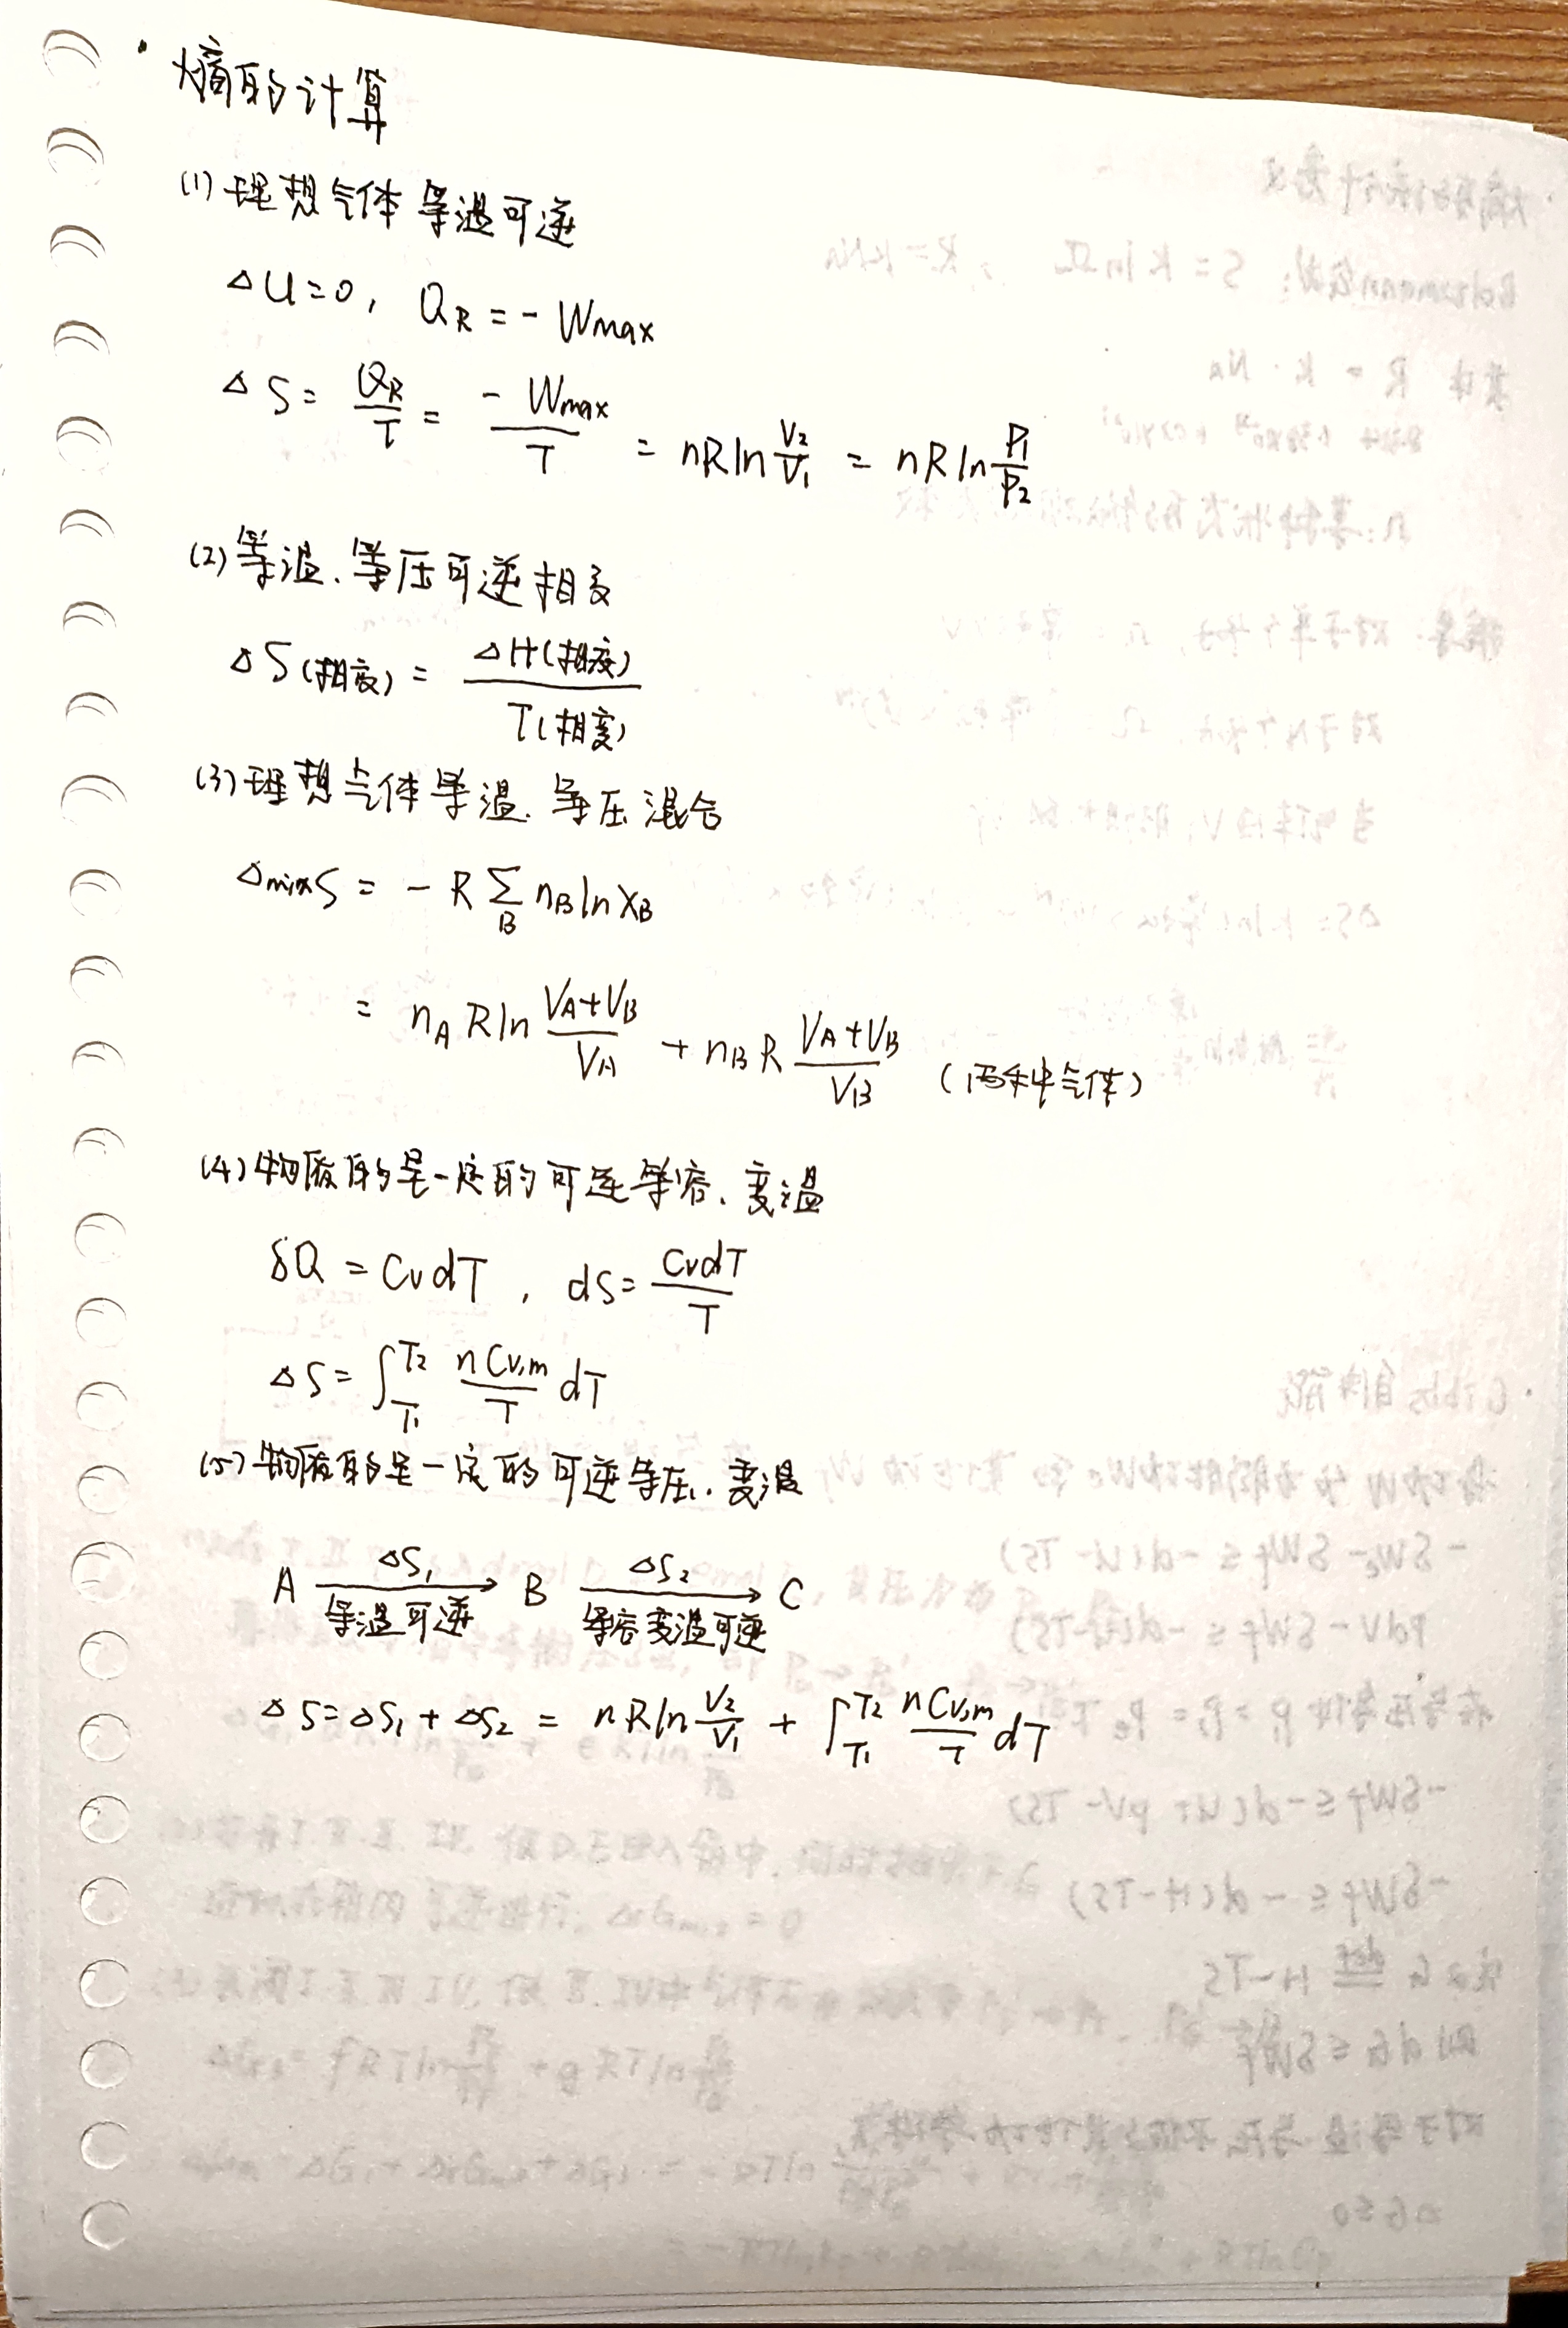 · 熵的计算
(1) 理想气体等温可逆
ΔU=0, QR=-Wmax
ΔS= QR/T = -Wmax/T = nRln V2/V1 = nRln P1/P2
(2) 等温、等压可逆相变
ΔS(相变) = ΔH(相变)/T(相变)
(3) 理想气体等温、等压混合
ΔmixS = -R Σ_B nB ln XB
= nA R ln (VA+VB)/VA + nB R (VA+VB)/VB (两种气体)
(4) 物质的量一定的可逆等容、变温
δQ = CvdT, dS= CvdT/T
ΔS= ∫_T1^T2 nCv,m/T dT
(5) 物质的量一定的可逆等压、变温
A —ΔS1 等温可逆→ B —ΔS2 等容变温可逆→ C
ΔS=ΔS1+ΔS2 = nRln V2/V1 + ∫_T1^T2 nCv,m/T dT